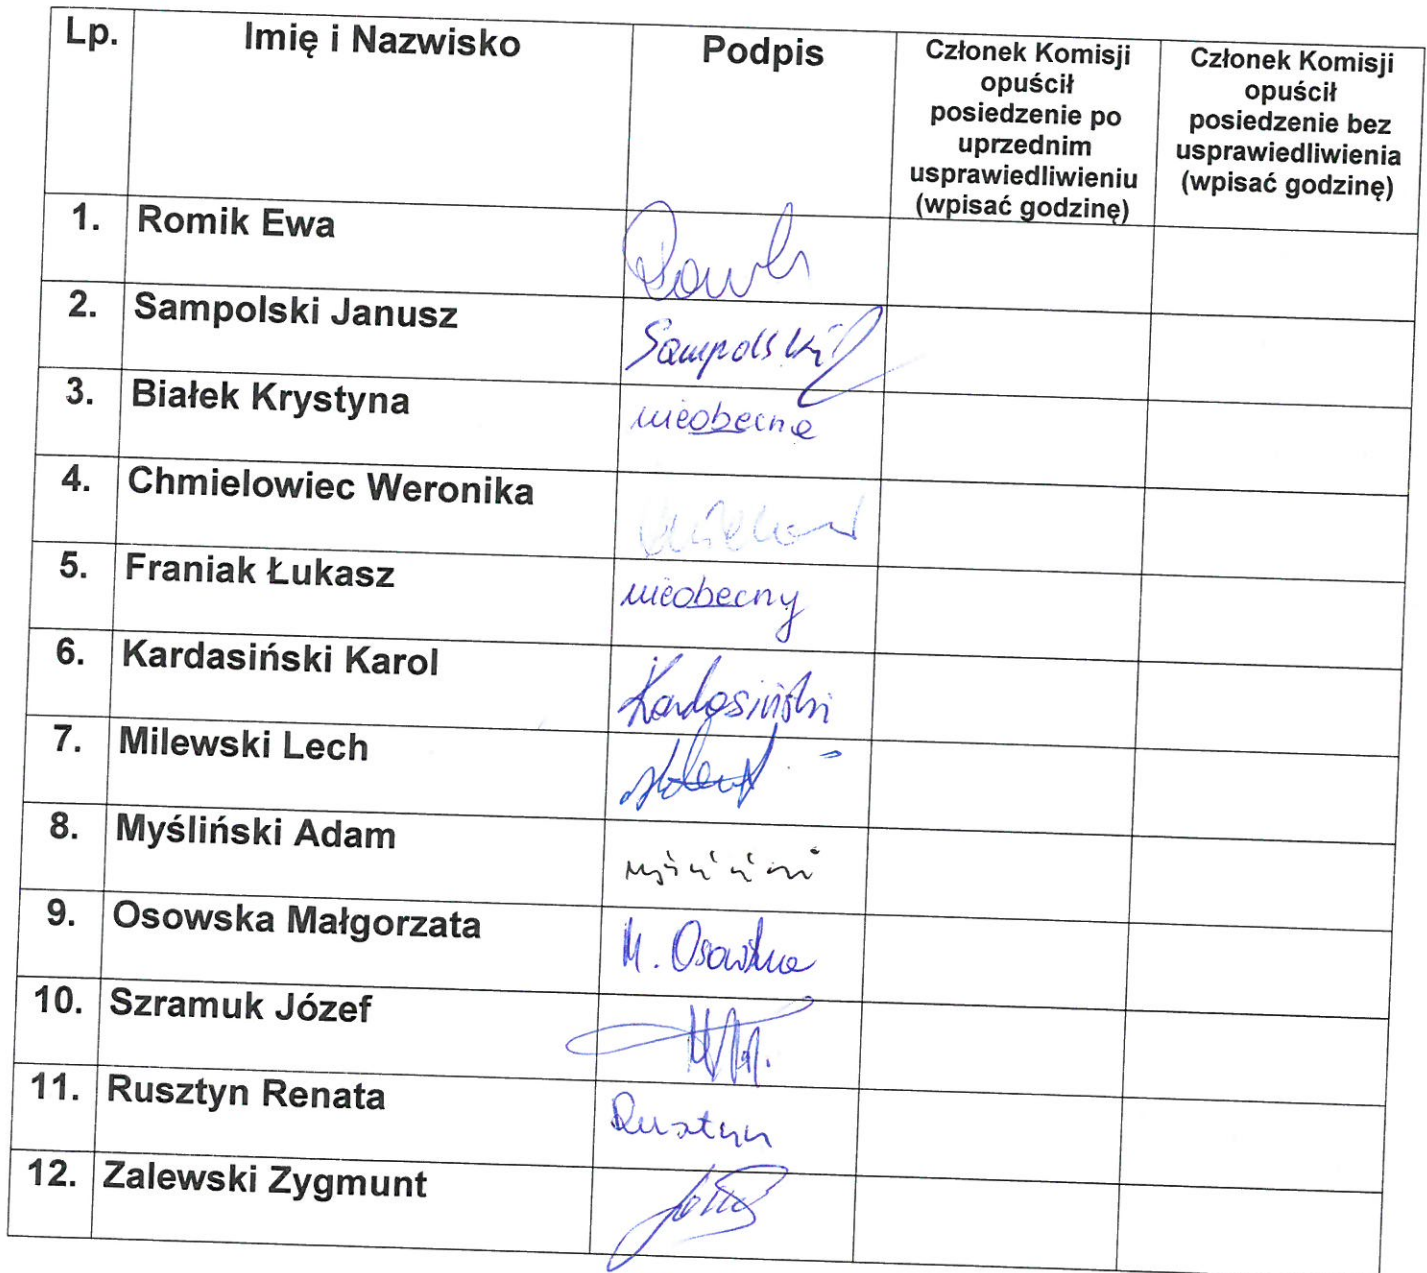 Lp. Imię i Nazwisko Podpis Członek Komisji opuścił posiedzenie po uprzednim usprawiedliwieniu (wpisać godzinę) Członek Komisji opuścił posiedzenie bez usprawiedliwienia (wpisać godzinę)
1. Romik Ewa
2. Sampolski Janusz Sampolski
3. Białek Krystyna nieobecna
4. Chmielowiec Weronika
5. Franiak Łukasz nieobecny
6. Kardasiński Karol Kardasiński
7. Milewski Lech
8. Myśliński Adam
9. Osowska Małgorzata M. Osowska
10. Szramuk Józef
11. Rusztyn Renata Rusztyn
12. Zalewski Zygmunt